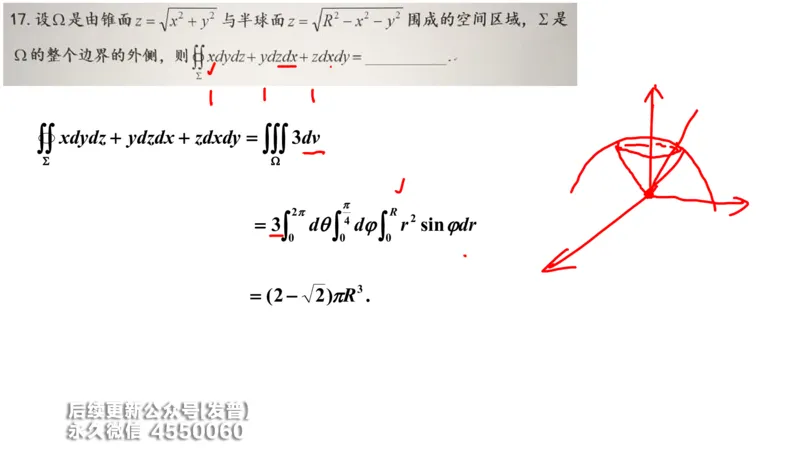 17. 设Ω是由锥面 z = √(x² + y²) 与半球面 z = √(R² − x² − y²) 围成的空间区域，Σ是
Ω的整个边界的外侧，则 ∯_Σ xdydz + ydzdx + zdxdy = ________.
∯_Σ xdydz + ydzdx + zdxdy = ∭_Ω 3dv
= 3∫₀^{2π} dθ ∫₀^{π/4} dφ ∫₀^R r² sin φdr
= (2 − √2)πR³.
后续更新公众号(发普)
永久微信 4550060